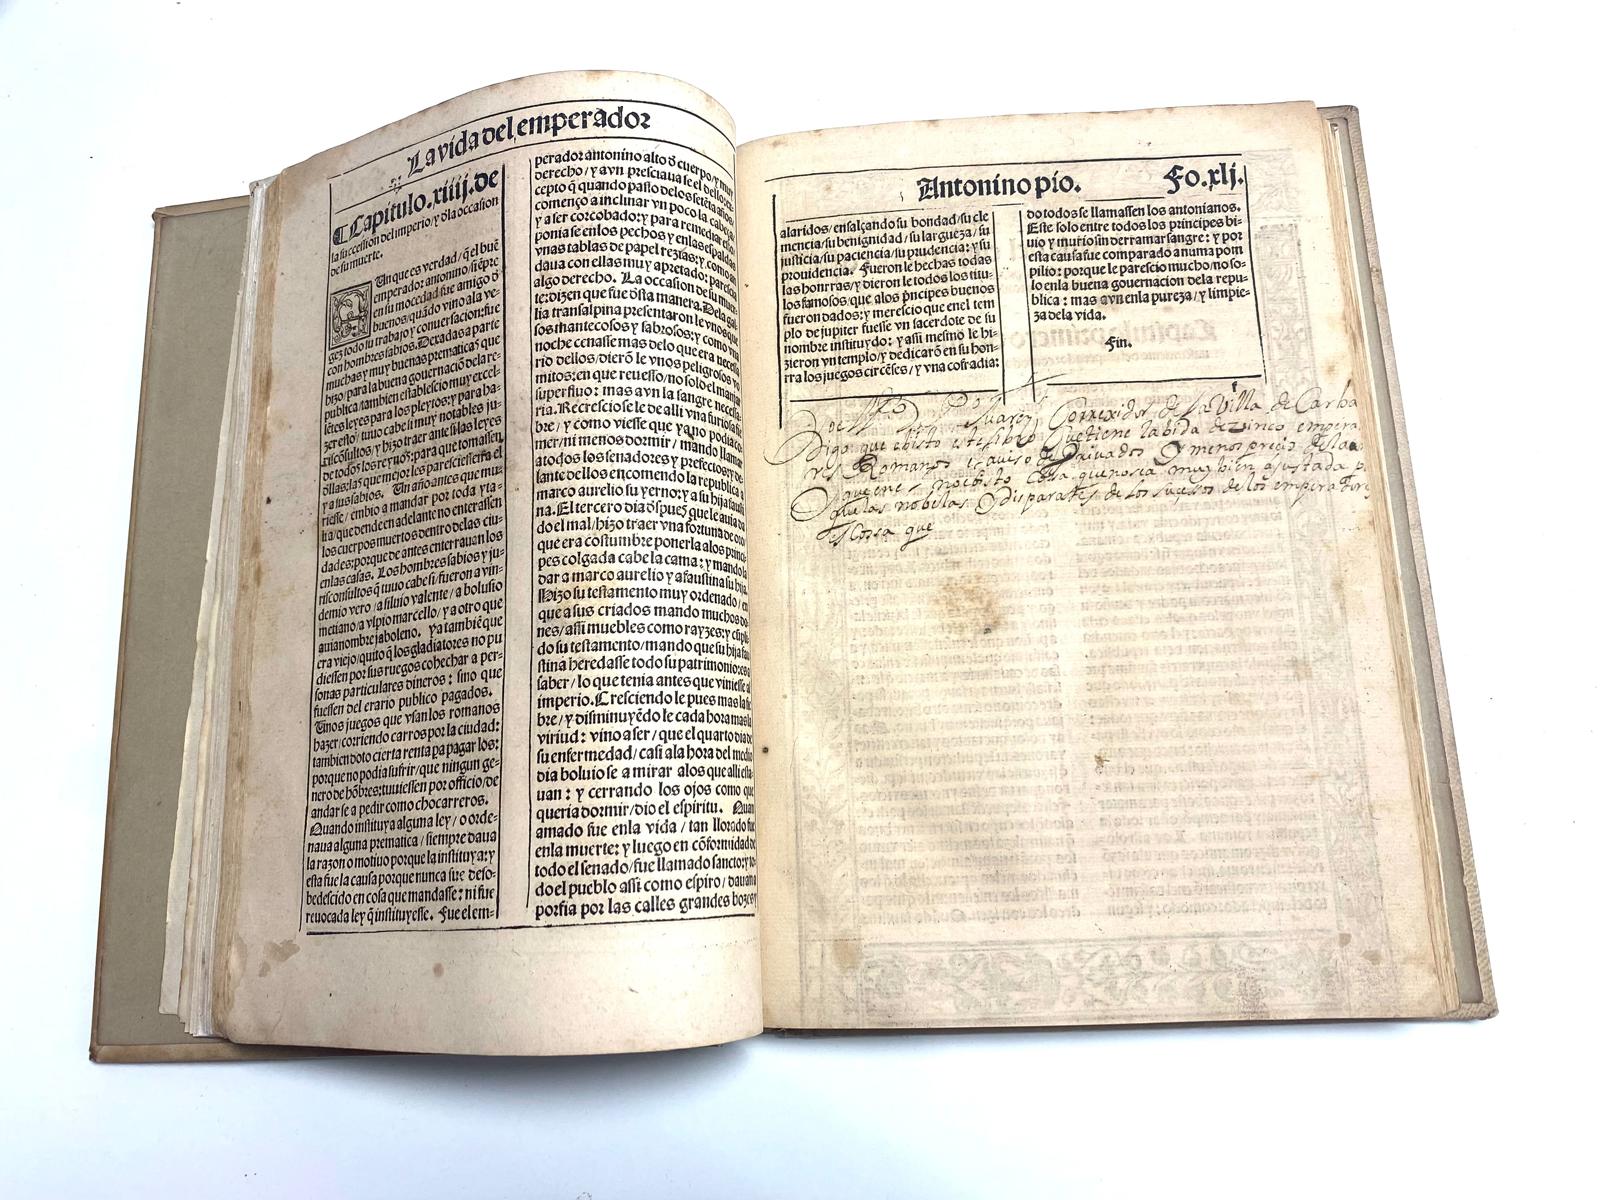 La vida del emperador
¶Capitulo.xiiij.de
la succession del imperio/y đla occasion
de su muerte.
Aun que es verdad/q̃ el buē
emperador antonino/siēpre
en su mocedad fue amigo đ
buenos/quādo vino a la ve-
gez todo su trabajo y conuersacion:fue
con hombres sabios. Dexadas a parte
muchas y muy buenas prematicas que
hizo/para la buena gouernaciō dela re-
publica/tambien establescio muy excel-
lētes leyes para los pleytos:y para ha-
zer esto/tuuo cabe si muy notables ju-
risconsultos/y hizo traer ante si las leyes
de todos los reynos:para que tomassen
đllas:las que mejor les paresciesse a el
y a sus sabios. Un año antes que mu-
riesse/embio a mandar por toda yta-
lia/que dende en adelante no enterassen
los cuerpos muertos dentro delas ciu-
dades:porque de antes enterrauan los
enlas casas. Los hombres sabios y ju-
risconsultos q̃ tuuo cabe si/fueron a vin-
demio vero/a siluio valente/a bolusio
metiano/a vlpio marcello/y a otro que
auia nombre jaboleno. Ya tambiē que
era viejo/quito q̃ los gladiatores no pu
diessen por sus ruegos cohechar a per-
sonas particulares dineros: sino que
fuessen del erario publico pagados.
Unos juegos que vsan los romanos
hazer/corriendo carros por la ciudad:
tambien doto cierta renta pa pagar los:
porque no podia sufrir/que ningun ge-
nero de hōbres:tuuiessen por officio/de
andar se a pedir como chocarreros.
Quando instituya alguna ley/o orde-
naua alguna prematica/siempre daua
la razon o motiuo porque la instituya:y
esta fue la causa porque nunca fue deso-
bedescido en cosa que mandasse: ni fue
reuocada ley q̃ instituyesse. Fue el em-
perador antonino alto đ cuerpo/y muy
derecho/y avn presciaua se el dello:ex-
cepto q̃ quando passo delos setēta años/
començo a inclinar vn poco la cabeça
y a ser corcobado:y para remediar esto
ponia se enlos pechos y enlas espaldas
vnas tablas de papel rezias:y como an
daua con ellas muy apretado: parescia
algo derecho. La occasion de su muer-
te:dizen que fue đsta manera. Dela gal-
lia transalpina presentaron le vnos que
sos mantecosos y sabrosos:y como vna
noche cenasse mas delo que era necessa
rio dellos/dierō le vnos peligrosos vo
mitos:en que reuesso/no solo el manjar
superfluo: mas avn la sangre necessa-
ria. Recrescio se le de alli vna furiosa fie
bre/y como viesse que ya no podia co-
mer/ni menos dormir/mando llamar
a todos los senadores y prefectos:y de-
lante dellos encomendo la republica a
marco aurelio su yerno:y a su hija fausti
na. El tercero dia đspues que le auia da
do el mal/hizo traer vna fortuna de oro:
que era costumbre poner la a los princi-
pes colgada cabe la cama: y mando la
dar a marco aurelio y a faustina su hija.
Hizo su testamento muy ordenado/en
que a sus criados mando muchos do-
nes/assi muebles como rayzes:y cūplien
do su testamento/mando que su hija fau
stina heredasse todo su patrimonio:es a
saber/lo que tenia antes que viniesse al
imperio. Cresciendo le pues mas la fie
bre/y disminuyēdo le cada hora mas la
virtud: vino a ser/que el quarto dia de
su enfermedad/casi a la hora del medio
dia boluio se a mirar a los que alli esta-
uan: y cerrando los ojos como que
queria dormir/dio el espiritu. Quan
amado fue enla vida/tan llorado fue
enla muerte: y luego en cōformidad de
todo el senado/fue llamado sancto:y to-
do el pueblo assi como espiro/dauan a
porfia por las calles grandes bozes y
Antonino pio. Fo.xlj.
alaridos/ensalçando su bondad/su cle
mencia/su benignidad/su largueza/su
justicia/su paciencia/su prudencia: y su
prouidencia. Fueron le hechas todas
las honrras/y dieron le todos los titu-
los famosos/que a los p̃ncipes buenos
fueron dados: y merescio que en el tem
plo de jupiter fuesse vn sacerdote de su
nombre instituydo: y assi mesmo le hi-
zieron vn templo/y dedicarō en su hon-
rra los juegos circēses/y vna cofradia:
do todos se llamassen los antonianos.
Este solo entre todos los principes bi-
uio y murio sin derramar sangre: y por
esta causa fue comparado a numa pom
pilio: porque le parescio mucho/no so-
lo enla buena gouernacion dela repu-
blica: mas avn enla pureza/y limpie-
za dela vida.
Fin.
Suarez Correxidor de la Villa de Carba
Digo que e bisto este libro Que tiene la bida de zinco empera
res Romanos i aviso de Privados Y menos precio de la
Que no e bisto Cosa que no sea muy bien ajustada
que las nobelas Y disparates de los sucesos de los emperatores
es Cossa que